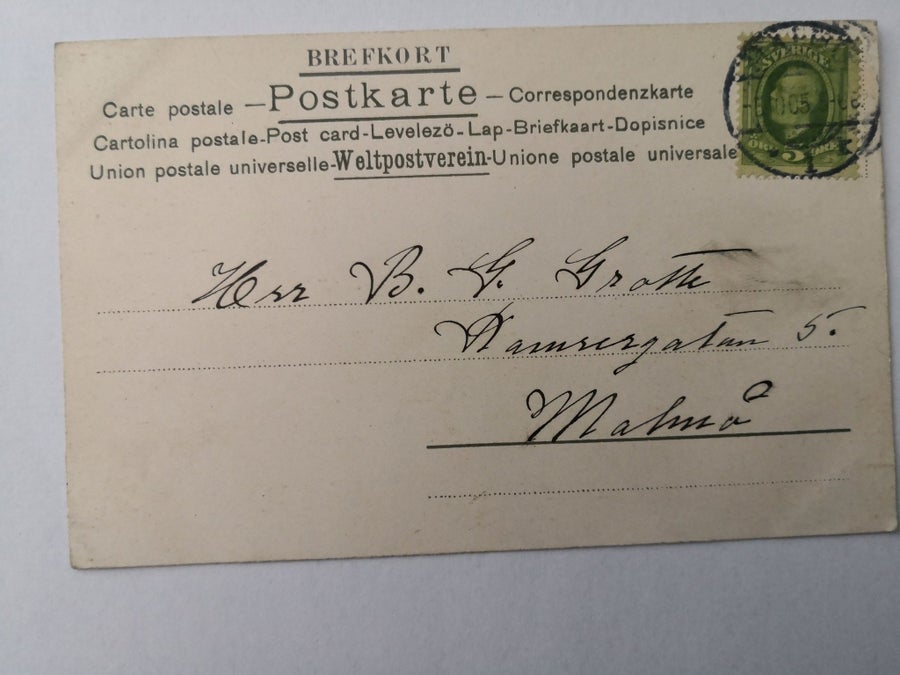 BREFKORT
Carte postale — Postkarte — Correspondenzkarte
Cartolina postale-Post card-Levelező-Lap-Briefkaart-Dopisnice
Union postale universelle-Weltpostverein-Unione postale universale
SVERIGE
5
ÖRE ÖRE
05
Herr B. G. Grotte
5.
Malmö